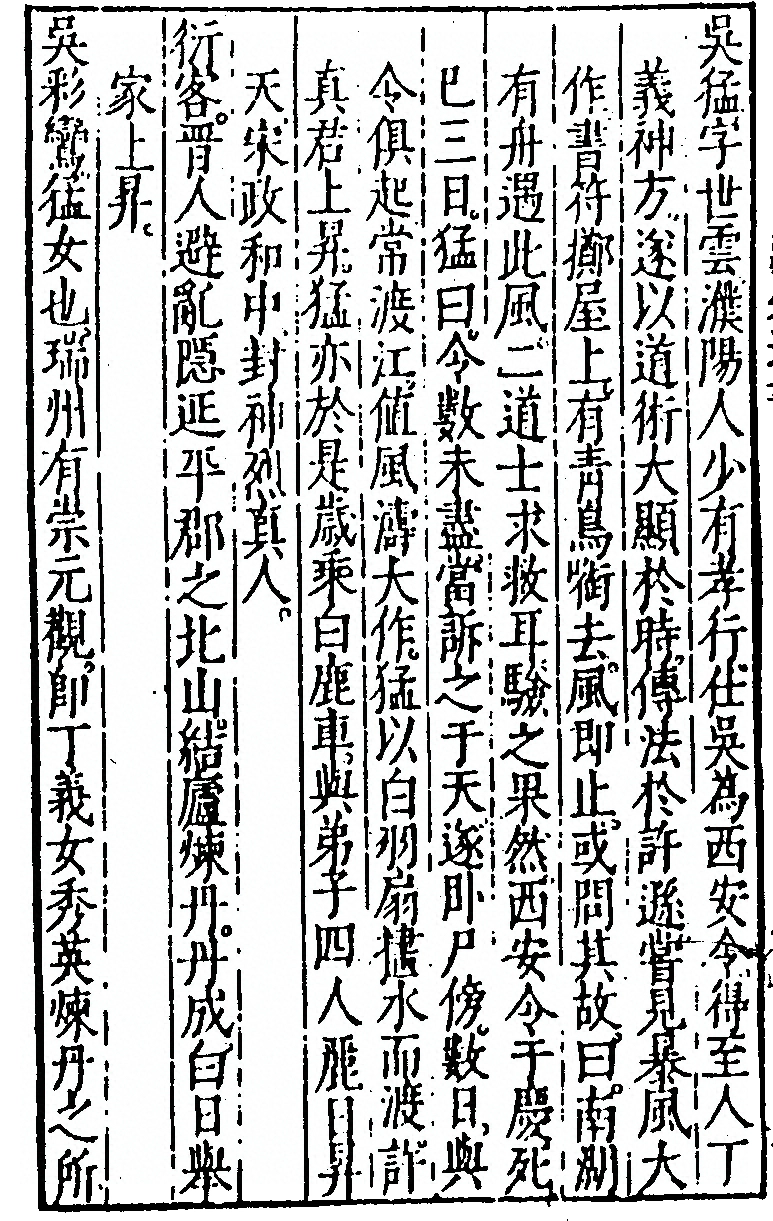 吳猛字世雲濮陽人少有孝行仕吳為西安令得至人丁
義神方遂以道術大顯於時傳法於許遜嘗見暴風大
作書符擲屋上有青鳥銜去風即止或問其故曰南湖
有舟遇此風二道士求救耳驗之果然西安令于慶死
巳三日猛曰令數未盡當訴之于天遂卧尸傍數日與
令俱起常渡江值風濤大作猛以白羽扇𢷬水而渡許
真君上昇猛亦於是歲乘白鹿車與弟子四人𪚥日昇
天宋政和中封神烈真人
衍客晋人避亂隠延平郡之北山結廬煉丹丹成白日舉
家上昇
吳彩鸞猛女也瑞州有崇元觀即丁義女秀英煉丹之所